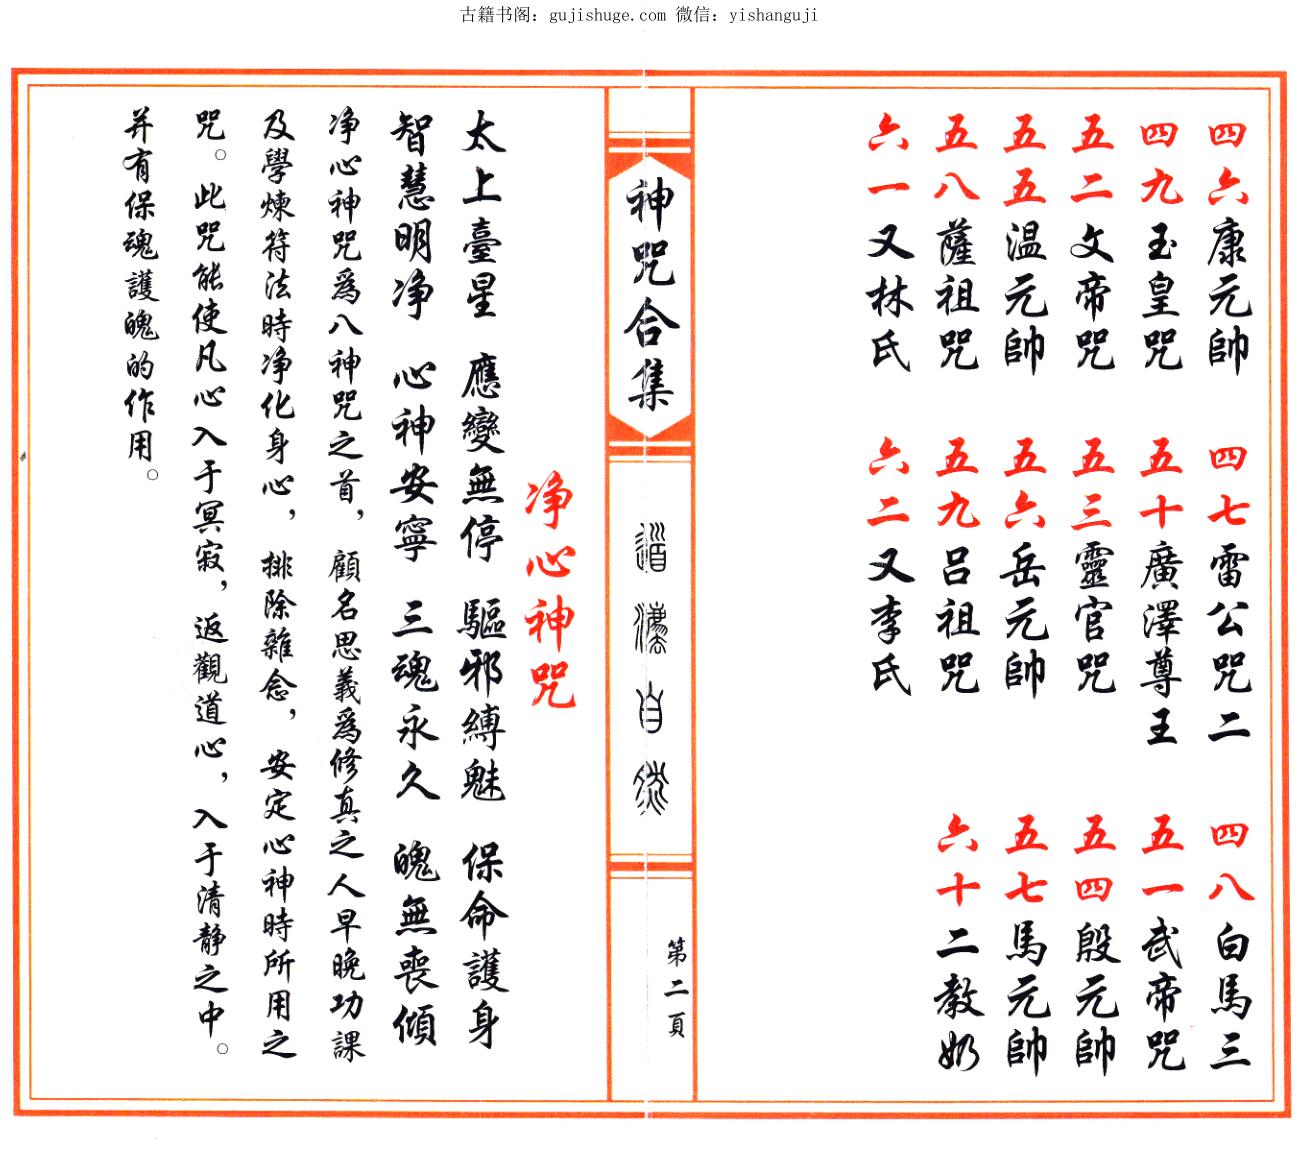 古籍书阁: gujishuge.com 微信: yishanguji
四六康元帥 四七雷公咒二 四八白馬三
四九玉皇咒 五十廣澤尊王 五一武帝咒
五二文帝咒 五三靈官咒 五四殷元帥
五五温元帥 五六岳元帥 五七馬元帥
五八薩祖咒 五九吕祖咒 六十二教奶
六一又林氏 六二又李氏
神咒合集
道法自然
第二頁
净心神咒
太上臺星 應變無停 驅邪縛魅 保命護身
智慧明净 心神安寧 三魂永久 魄無喪傾
净心神咒爲八神咒之首，顧名思義爲修真之人早晚功課
及學煉符法時净化身心，排除雜念，安定心神時所用之
咒。此咒能使凡心入于冥寂，返觀道心，入于清静之中。
并有保魂護魄的作用。